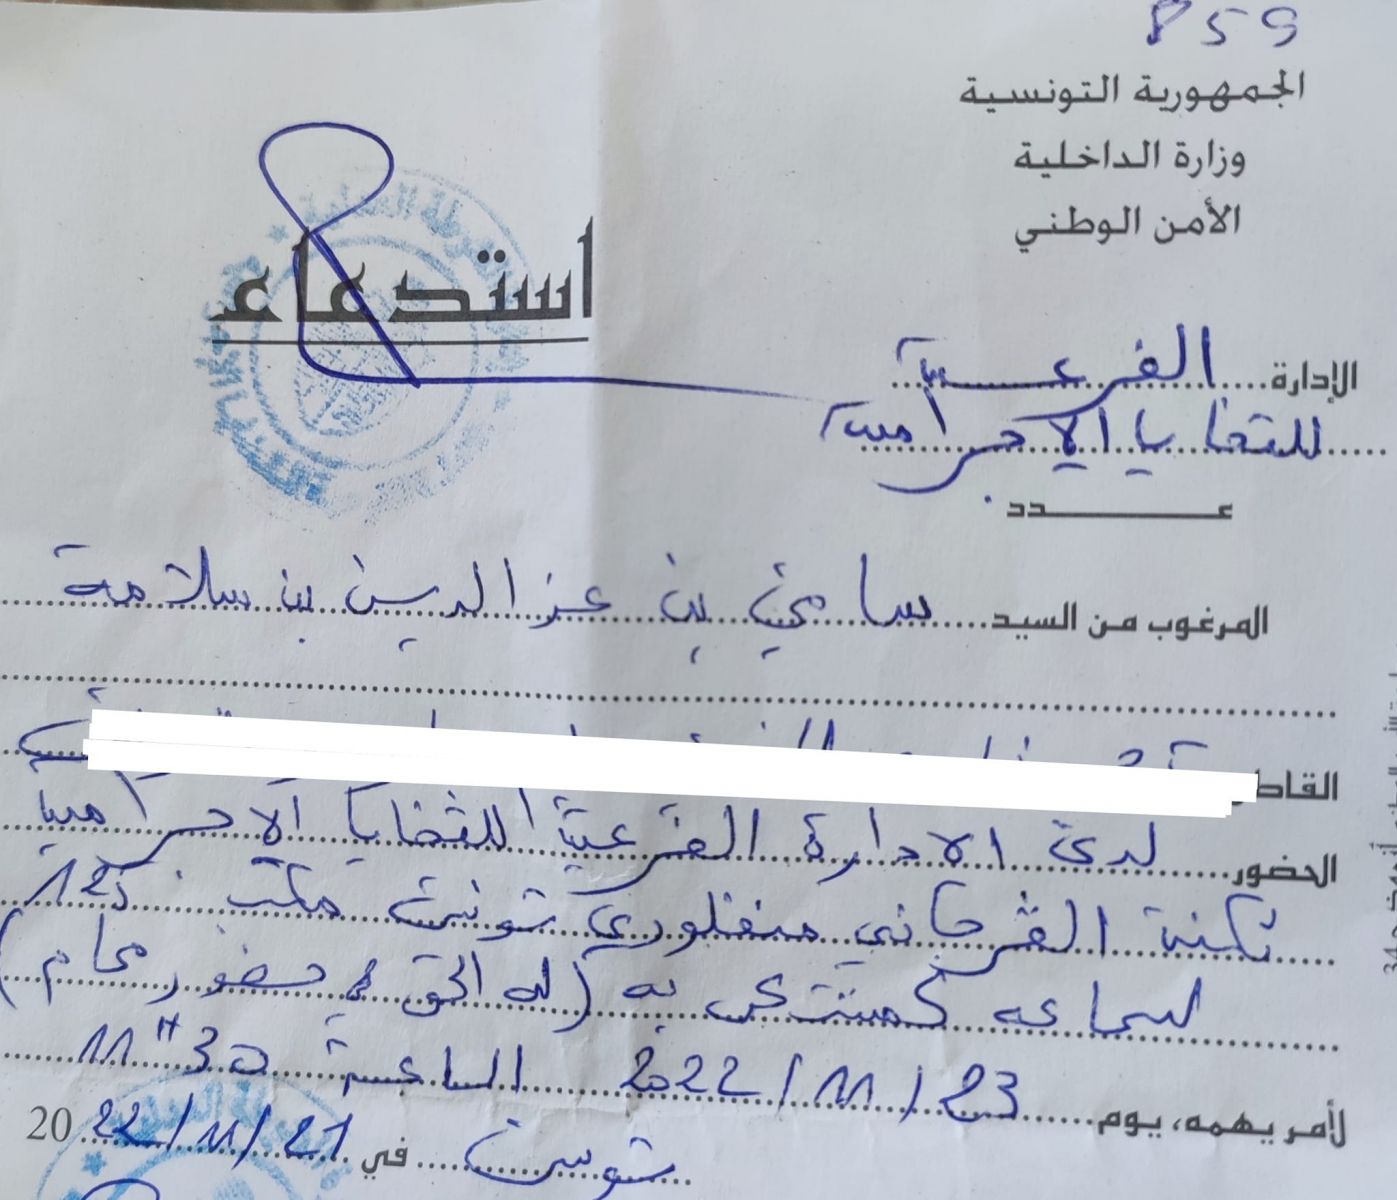 859
الجمهورية التونسية
وزارة الداخلية
الأمن الوطني
استدعاء
الإدارة الفرعية
للقضايا الإجرامية
عـــدد
المرغوب من السيد سامي بن عز الدين بن سلامة
القاطن
الحضور لدى الادارة الفرعية للقضايا الاجرامية
ثكنة القرجاني منفلوري تونس مكتب 125
لسماعه كمشتكى به (له الحق في حضور محام)
لأمر يهمه، يوم 23/11/2022 الساعة 11H30
تونس في 21/11/2022